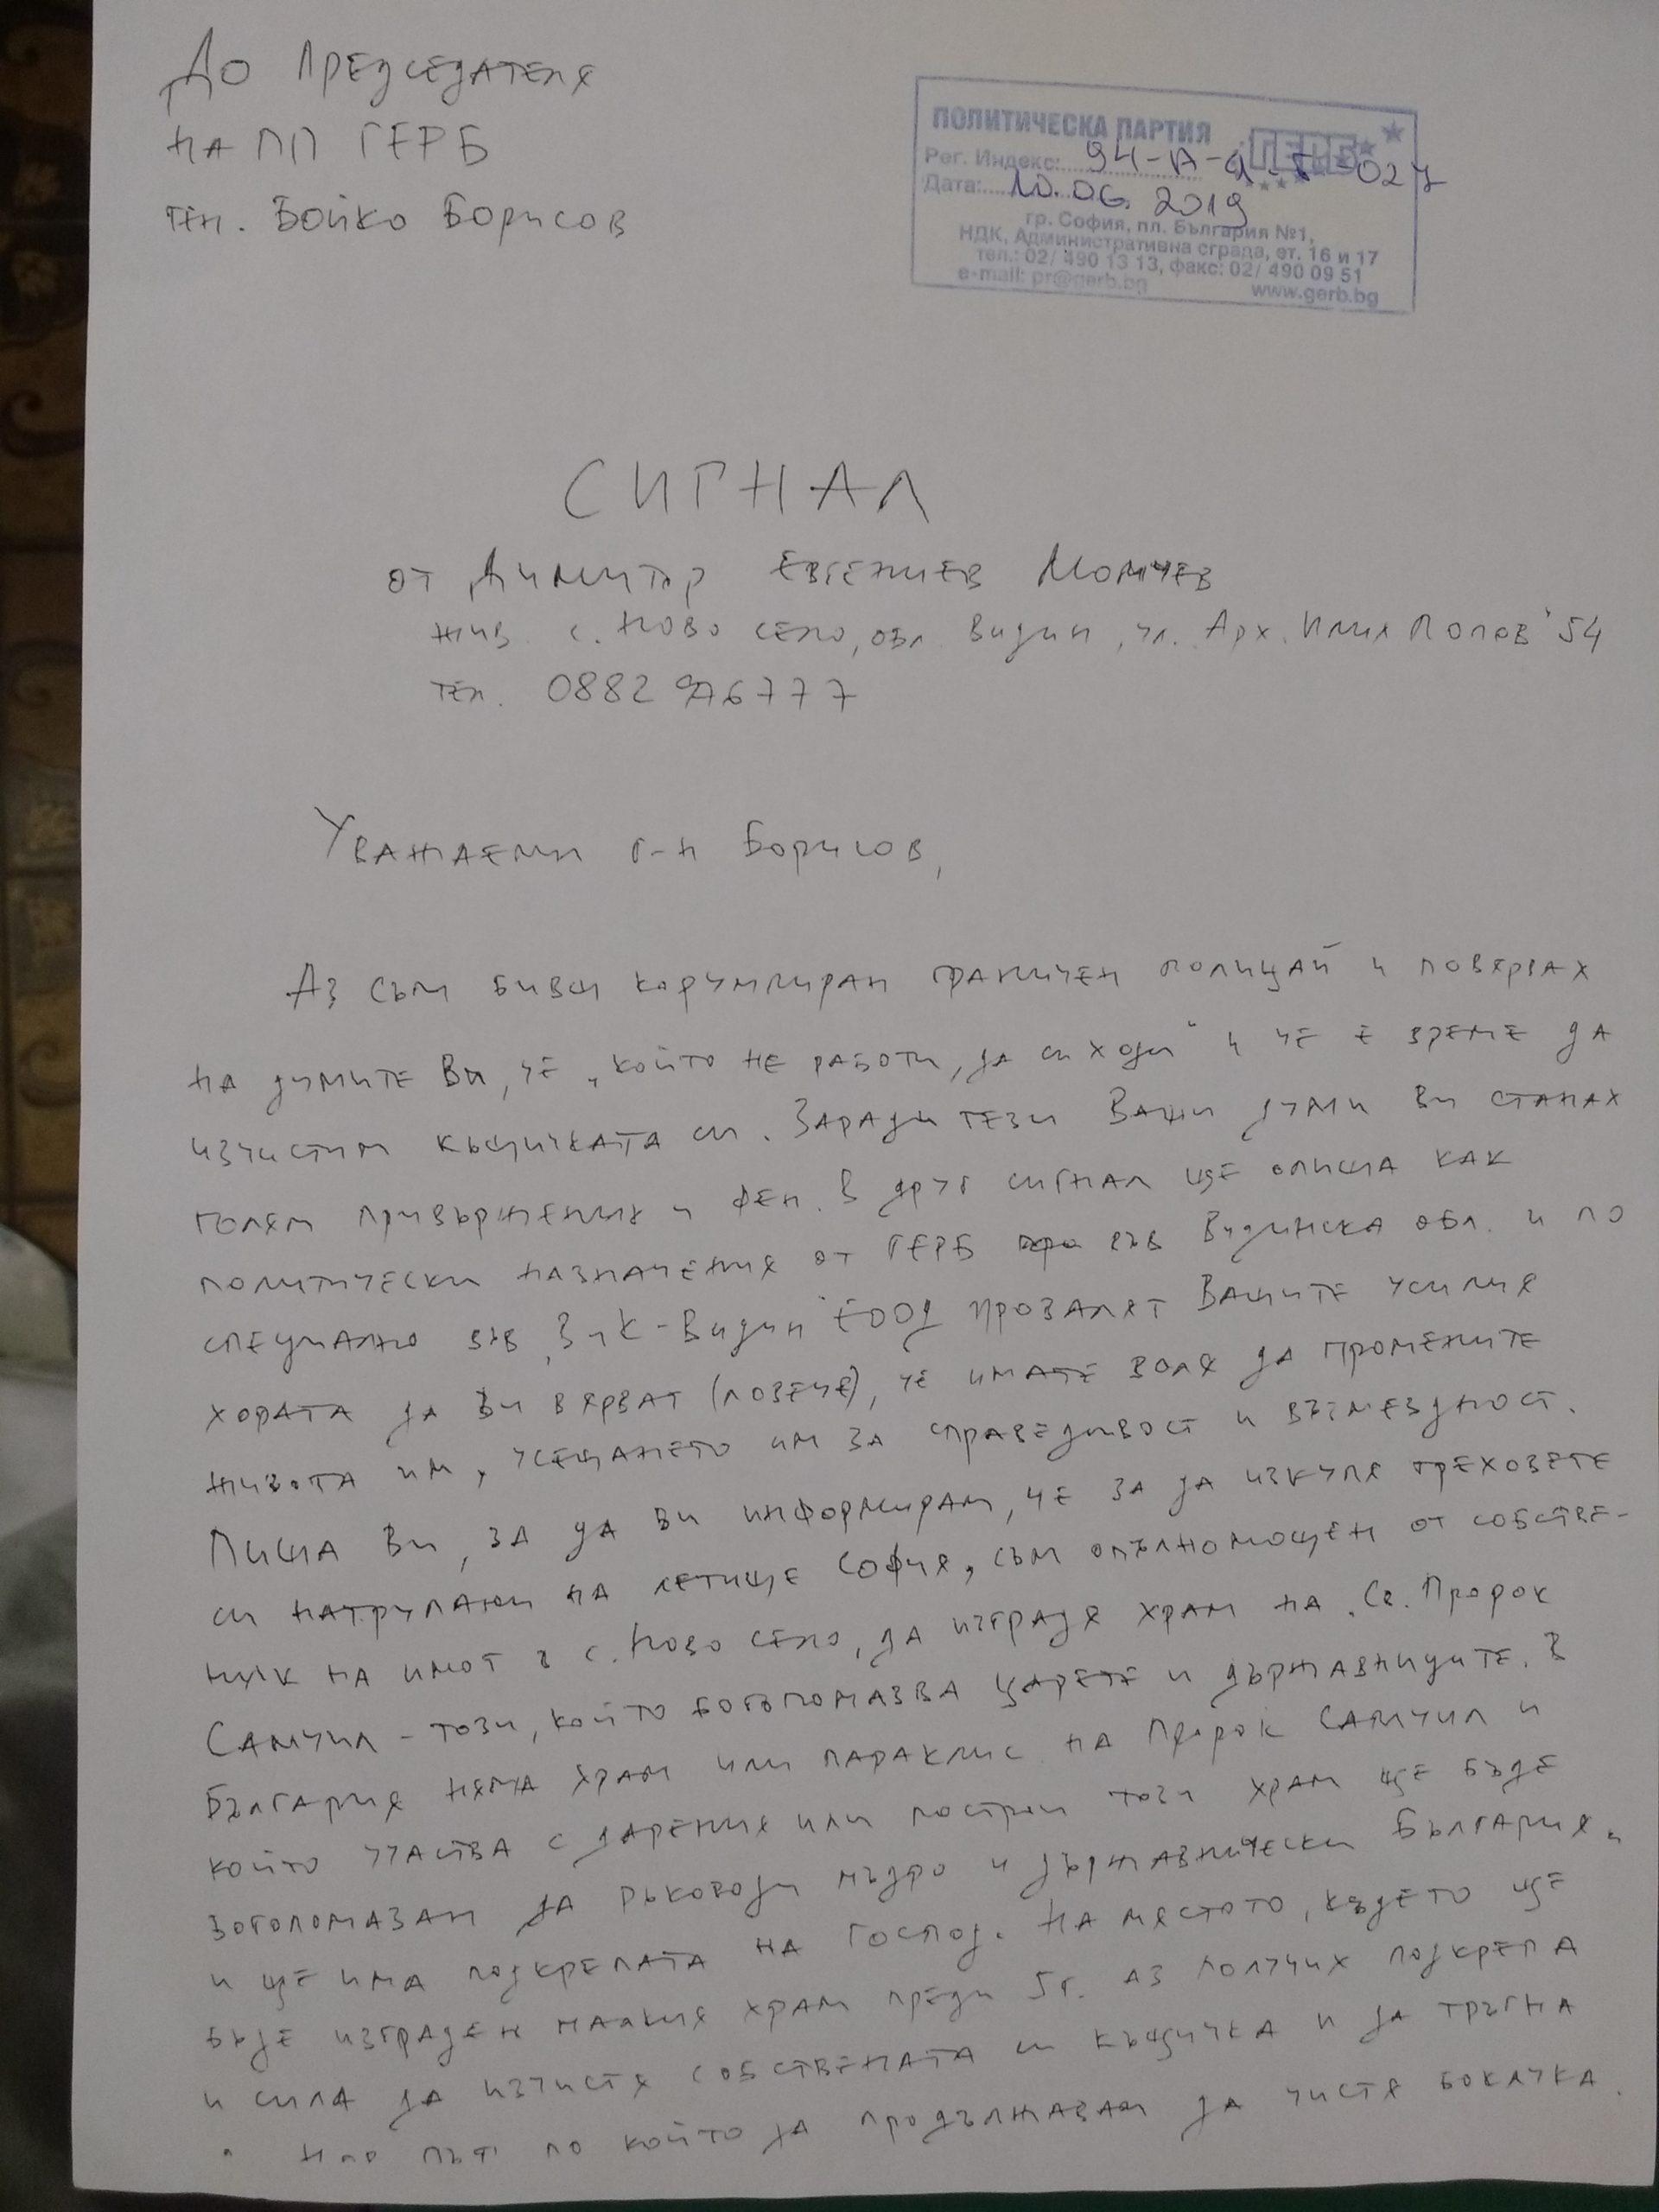 До Председателя
на ПП ГЕРБ
ген. Бойко Борисов
ПОЛИТИЧЕСКА ПАРТИЯ ГЕРБ
Рег. Индекс: 94-А-
Дата: 10.06.2019
гр. София, пл. България №1,
НДК, Административна сграда, ет. 16 и 17
тел.: 02/ 490 13 13, факс: 02/ 490 09 51
e-mail: pr@gerb.bg www.gerb.bg
СИГНАЛ
от Димитър Евгениев Момчев
жив. с. Ново село, обл. Видин, ул. Арх. Илия Попов" 54
тел. 0882 976777
Уважаеми г-н Борисов,
Аз съм бивш корумпиран граничен полицай и повярвах
на думите Ви, че „който не работи, да си ходи" и че е време да
изчистим къщичката си. Заради тези Ваши думи Ви станах
голям привърженик и фен. В друг сигнал ще опиша как
политически назначения от ГЕРБ във Видинска обл. и по
специално във „ВиК-Видин" ЕООД провалят Вашите усилия
хората да Ви вярват (повече), че имате воля да промените
живота им, усещането им за справедливост и възмездност.
Пиша Ви, за да Ви информирам, че за да изкупя греховете
си натрупани на летище София, съм опълномощен от собстве-
ник на имот в с. Ново село, да изградя храм на Св. Пророк
Самуил - този, който богопомазва царете и държавниците. В
България няма храм или параклис на Пророк Самуил и
който участва с дарения или построи този храм ще бъде
богопомазан да ръководи мъдро и държавнически България
и ще има подкрепата на Господ. На мястото, където ще
бъде изграден малкия храм преди 5г. аз получих подкрепа
и сила да изчистя собствената си къщичка и да тръгна
по път по който да продължавам да чистя боклука.